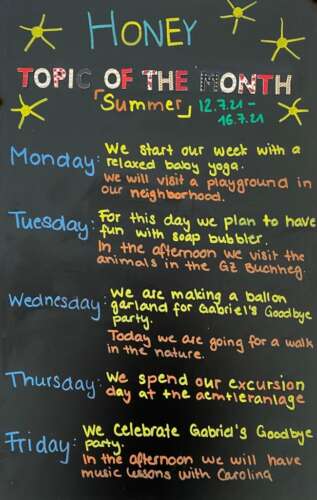 HONEY
TOPIC OF THE MONTH
「Summer」 12.7.21 -
16.7.21
Monday: We start our week with a
relaxed baby yoga.
We will visit a playground in
our neighborhood.
Tuesday: For this day we plan to have
fun with soap bubbler.
In the afternoon we visit the
animals in the GZ Buchheg.
Wednesday: We are making a ballon
garland for Gabriel's Goodbye
party.
Today we are going for a walk
in the nature.
Thursday: We spend our excursion
day at the aemtleranlage
Friday: We celebrate Gabriel's Goodbye
party.
In the afternoon we will have
music lessons with Carolina